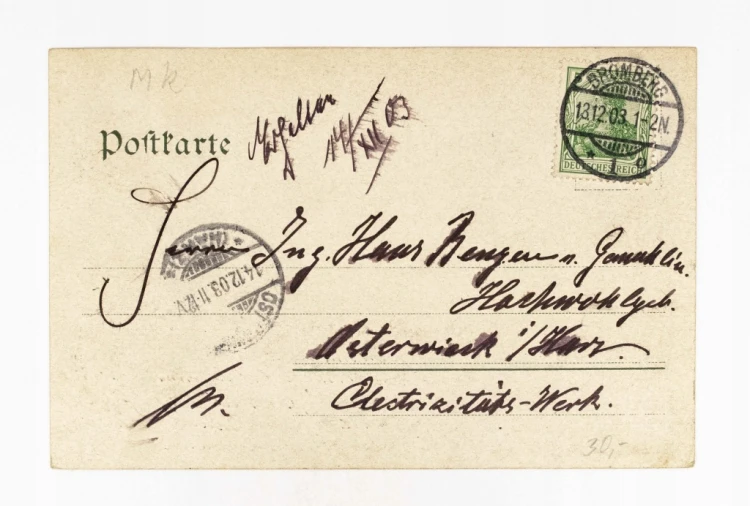 Mk
BROMBERG
13.12.03. 1-2N.
* 1 o
DEUTSCHES REICH
Postkarte
14/XII 03
Herrn Ing. Haus Bengen u. Gemahlin.
Hochwohlgeb.
14.12.03.11-12V.
OST
Osterwieck i/Harz.
Electrizitäts-Werk.
30,-